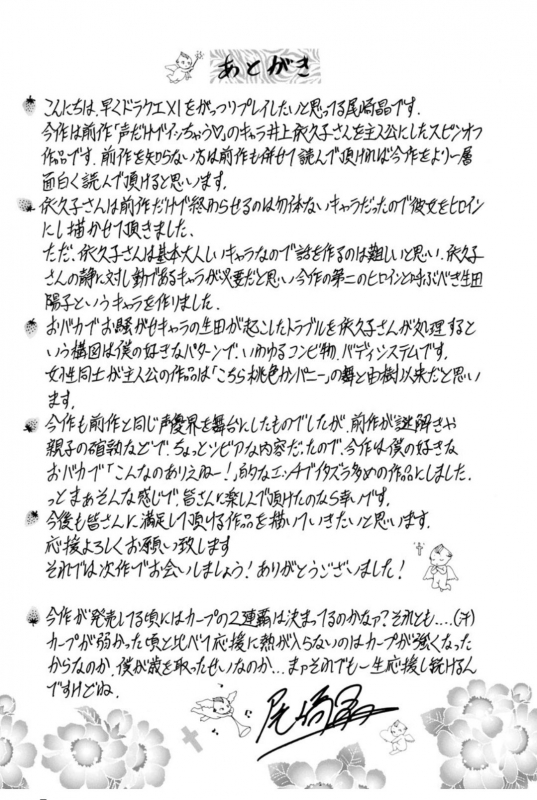 あとがき
こんにちは、早くドラクエXIをがっつりプレイしたいと思ってる尾崎晶です.
今作は前作「声だけでイッちゃう♡」のキャラ井上依久子さんを主人公にしたスピンオフ
作品です.前作を知らない方は前作も併せて読んで頂ければ今作をより一層
面白く読んで頂けると思います.
依久子さんは前作だけで終わらせるのは勿体ないキャラだったので彼女をヒロイン
にし描かせて頂きました.
ただ、依久子さんは基本大人しいキャラなので話を作るのは難しいと思い、依久子
さんの静に対し動であるキャラが必要だと思い今作の第二のヒロインと呼ぶべき生田
陽子というキャラを作りました.
おバカでお騒がせキャラの生田が起こしたトラブルを依久子さんが処理すると
いう構図は僕の好きなパターンで、いわゆるコンビ物、バディシステムです.
女性同士が主人公の作品は「こちら桃色カンパニー」の舞と由樹以来だと思い
ます.
今作も前作と同じ声優界を舞台にしたものでしたが、前作が謎解きや
親子の確執などで、ちょっとシビアな内容だったので、今作は僕の好きな
おバカで「こんなのありえねー！」的なエッチでイタズラ多めの作品にしました.
っとまぁそんな感じで、皆さんに楽しんで頂けたのなら幸いです.
今後も皆さんに満足して頂ける作品を描いていきたいと思います.
応援よろしくお願い致します
それでは次作でお会いしましょう！ありがとうございました！
今作が発売してる頃にはカープの2連覇は決まってるのかなァ？それとも....(汗)
カープが弱かった頃と比べて応援に熱が入らないのはカープが強くなった
からなのか、僕が歳を取ったせいなのか...まァそれでも一生応援し続けるん
ですけどね.
尾崎晶